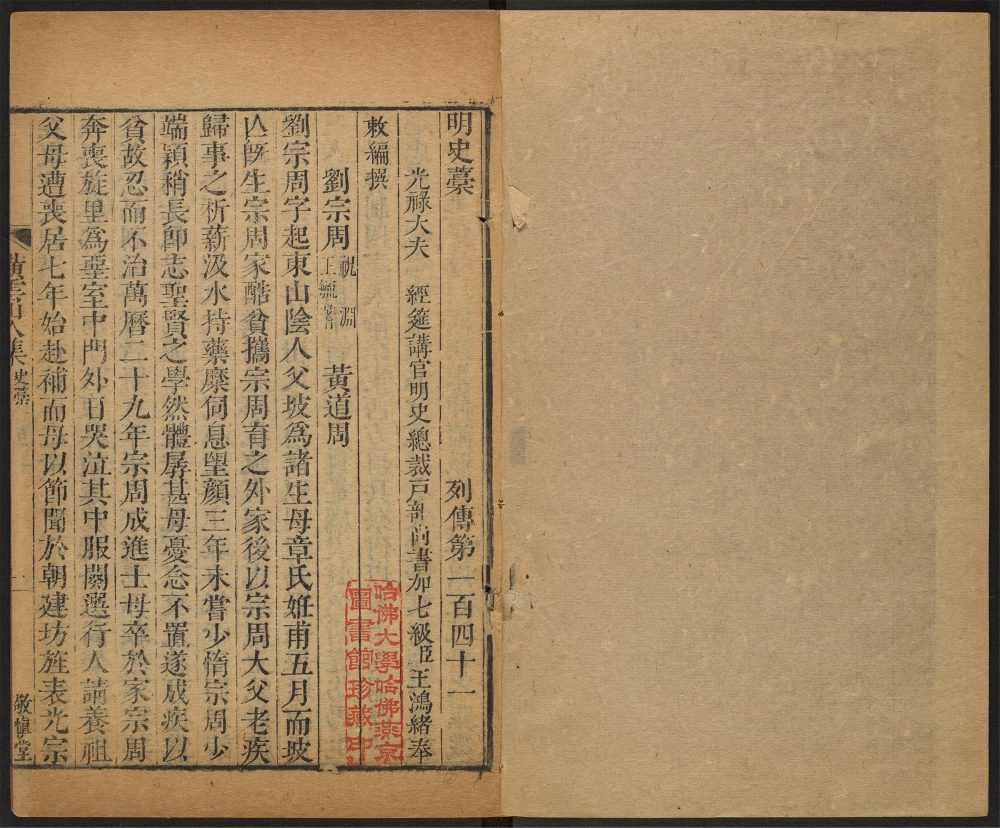 明史藁 列傳第一百四十一
光祿大夫 經筵講官明史總裁戶部尚書加七級臣王鴻緒奉
敕編撰
劉宗周 祝淵 王毓蓍 黃道周
劉宗周字起東山陰人父坡為諸生母章氏姙甫五月而坡
亾既生宗周家酷貧攜宗周育之外家後以宗周大父老疾
歸事之析薪汲水持藥糜伺息望顏三年未嘗少惰宗周少
端穎稍長即志聖賢之學然體孱甚母憂念不置遂成疾以
貧故忍而不治萬曆二十九年宗周成進士母卒於家宗周
奔喪旋里為堊室中門外日哭泣其中服闋選行人請養祖
父母遭喪居七年始赴補而母以節聞於朝建坊旌表光宗
橫雲山人集 史藁
敬慎堂
哈佛大學哈佛燕京
圖書館珍藏印